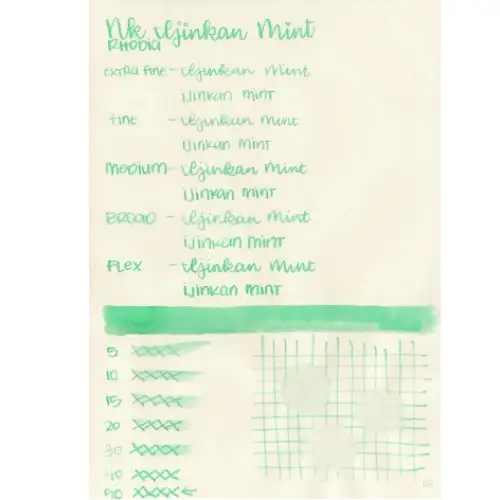 NK Ijinkan Mint
RHODIA
EXTRA FINE - Ijinkan Mint
IJINKAN MINT
FINE - Ijinkan Mint
IJINKAN MINT
MEDIUM - Ijinkan Mint
IJINKAN MINT
BROAD - Ijinkan Mint
IJINKAN MINT
FLEX - Ijinkan Mint
IJINKAN MINT
5 XXXX
10 XXXX
15 XXXX
20 XXXX
30 XXXX
40 XXXX
90 XXXX ←